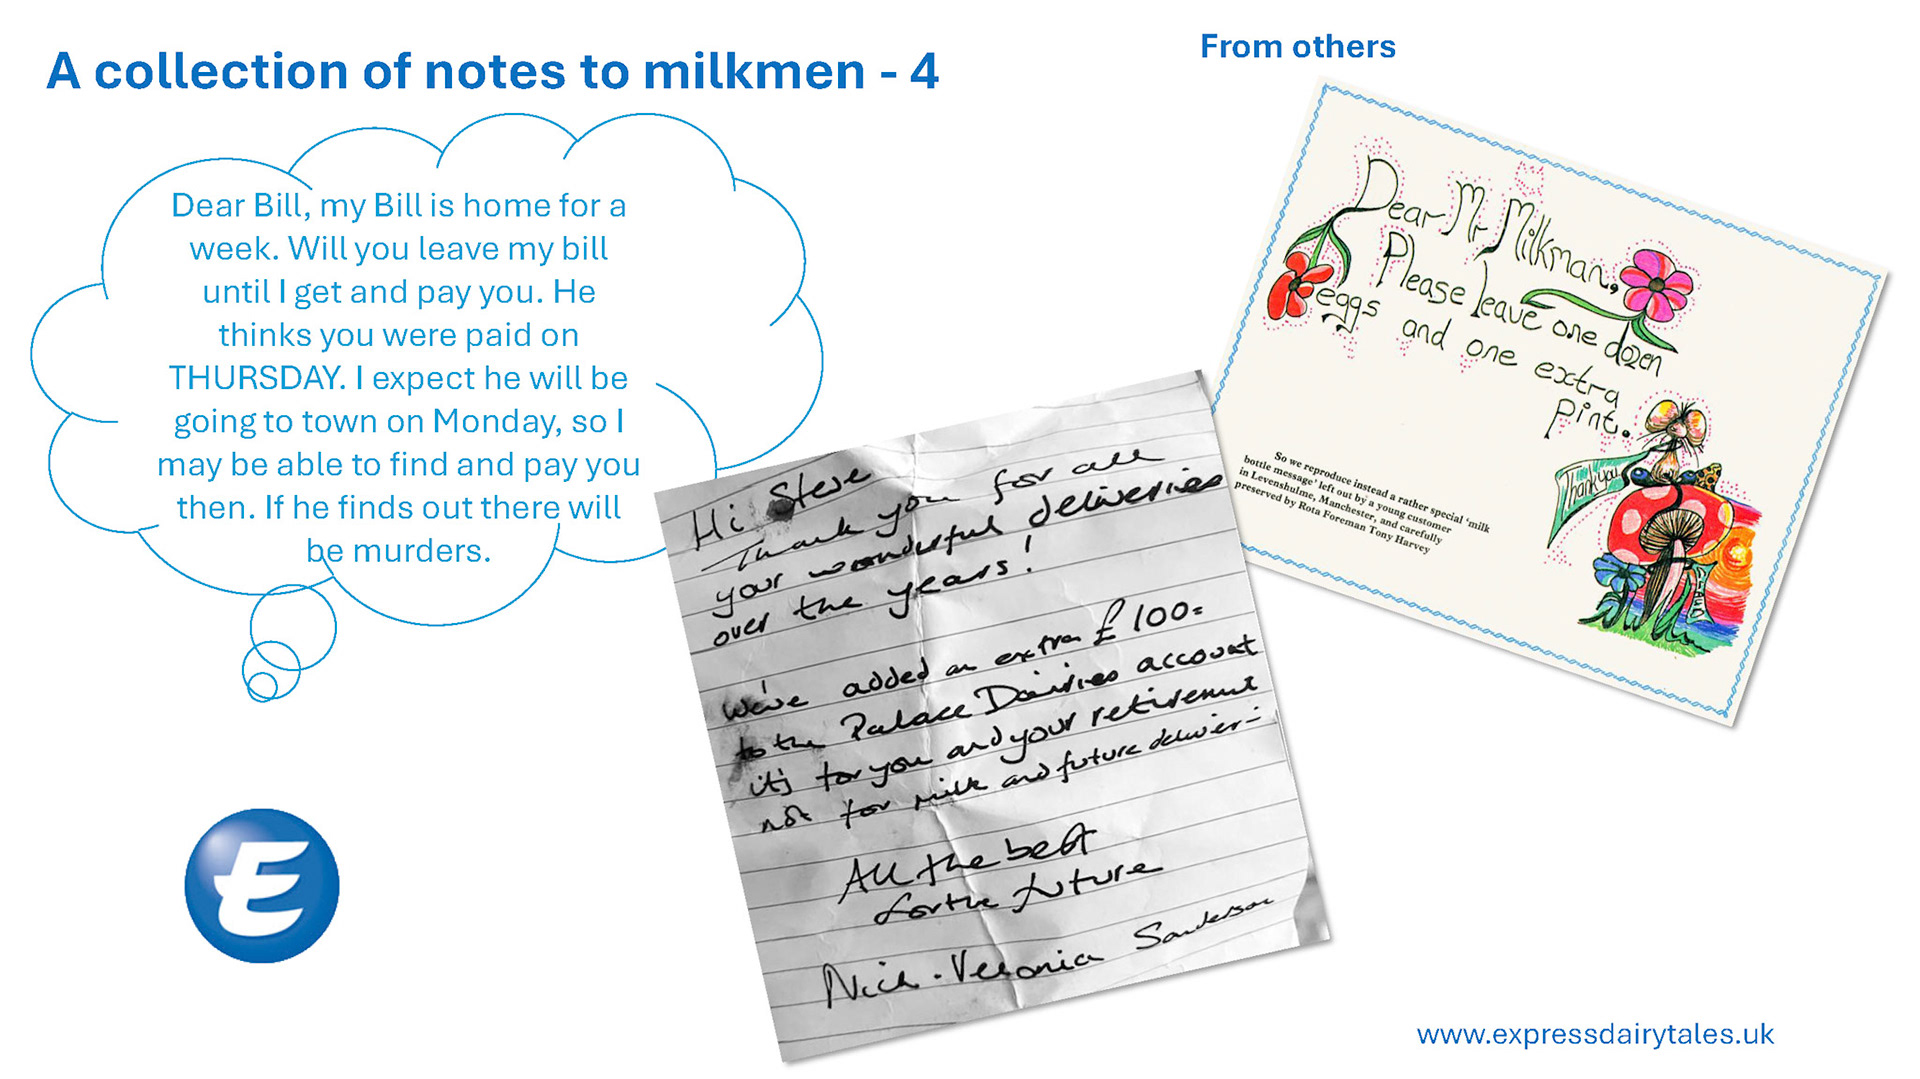 A collection of notes to milkmen - 4
Dear Bill, my Bill is home for a
week. Will you leave my bill
until I get and pay you. He
thinks you were paid on
THURSDAY. I expect he will be
going to town on Monday, so I
may be able to find and pay you
then. If he finds out there will
be murders.
E
Hi Steve
Thank you for all
your wonderful deliveries
over the years!
We've added an extra £100=
to the Palace Dairies account
it's for you and your retirement
not for milk and future deliver-
All the best
for the future
Nick · Veronia Sanderson
From others
Dear Mr Milkman,
Please leave one dozen
eggs and one extra
pint.
Thank you
So we reproduce instead a rather special 'milk
bottle message' left out by a young customer
in Levenshulme, Manchester, and carefully
preserved by Rota Foreman Tony Harvey
www.expressdairytales.uk